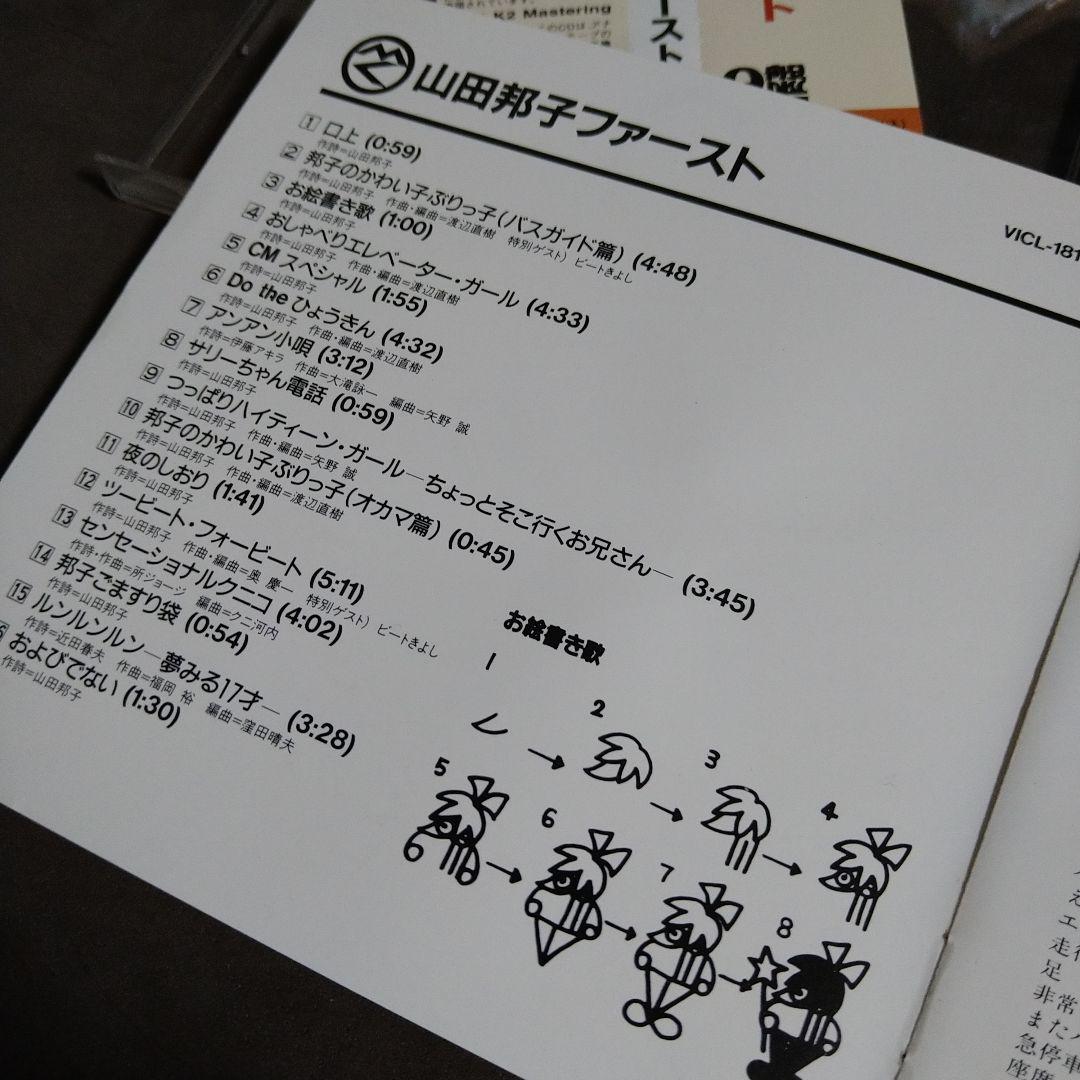 K2 Mastering
山田邦子ファースト
VICL-181
1 口上 (0:59)
作詩=山田邦子
2 邦子のかわい子ぶりっ子(バスガイド篇) (4:48)
作詩=山田邦子 作曲・編曲=渡辺直樹 特別ゲスト) ビートきよし
3 お絵書き歌 (1:00)
作詩=山田邦子
4 おしゃべりエレベーター・ガール (4:33)
作詩=山田邦子 作曲・編曲=渡辺直樹
5 CM スペシャル (1:55)
作詩=山田邦子
6 Do the ひょうきん (4:32)
作詩=山田邦子 作曲・編曲=渡辺直樹
7 アンアン小唄 (3:12)
作詩=伊藤アキラ 作曲=大滝詠一 編曲=矢野 誠
8 サリーちゃん電話 (0:59)
作詩=山田邦子
9 つっぱりハイティーン・ガール―ちょっとそこ行くお兄さん― (3:45)
作詩=山田邦子 作曲・編曲=矢野 誠
10 邦子のかわい子ぶりっ子(オカマ篇) (0:45)
作詩=山田邦子 作曲・編曲=渡辺直樹
11 夜のしおり (1:41)
作詩=山田邦子
12 ツービート・フォービート (5:11)
作詩=山田邦子 作曲・編曲=奥 慶一 特別ゲスト) ビートきよし
13 センセーショナルクニコ (4:02)
作詩・作曲=所ジョージ 編曲=クニ河内
14 邦子ごますり袋 (0:54)
作詩=山田邦子
15 ルンルンルン―夢みる17才― (3:28)
作詩=近田春夫 作曲=福岡 裕 編曲=窪田晴夫
6 およびでない (1:30)
作詩=山田邦子
お絵書き歌
1
2
3
4
5
6
7
8
エ
走行
足
非常
また
急停車
座席